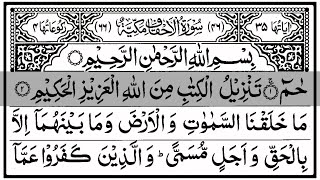 اٰیَاتُهَا ٣٥ (٤٦) سُوْرَةُ الْاَحْقَافِ مَكِّيَّةٌ (٦٦) رُكُوْعَاتُهَا ٤
بِسْمِ اللّٰهِ الرَّحْمٰنِ الرَّحِيْمِ
حٰمٓ ۝١ تَنْزِيْلُ الْكِتٰبِ مِنَ اللّٰهِ الْعَزِيْزِ الْحَكِيْمِ ۝٢
مَا خَلَقْنَا السَّمٰوٰتِ وَ الْاَرْضَ وَ مَا بَيْنَهُمَاۤ اِلَّا
بِالْحَقِّ وَ اَجَلٍ مُّسَمًّى ؕ وَ الَّذِيْنَ كَفَرُوْا عَمَّاۤ